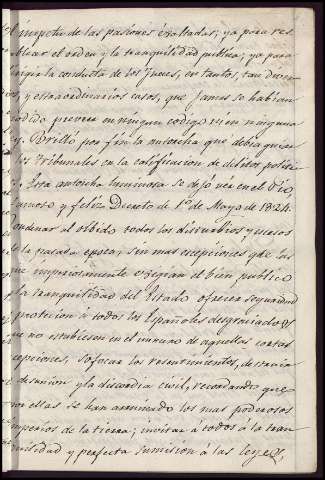 el impetu de las pasiones exaltadas; ya para res
tablecer el orden y la tranquilidad publica; ya para
la conducta de los Jueces, en tantos, tan diver
sos, y extraordinarios casos, que jamas se habian
podido prever en ningun codigo ni en ninguna
ley. Brilló por fin la antorcha que debia guiar
los Tribunales en la calificacion de delitos politi
Esta antorcha luminosa se dejó ver en el Pio,
famoso y feliz Decreto de 1º de Mayo de 1824.
ordenar al olbido todos los disturbios y sucesos
de la pasada epoca, sin mas escepciones que las
que imperiosamente exegian el bien publico
y la tranquilidad del Estado ofrecer seguridad
proteccion á todos los Españoles desgraciados
que no estubiesen en el numero de aquellas cortas
escepciones, sofocar los resentimientos, desterrar
desunion y la discordia civil, recordando que
por ellas se han arruinado los mas poderosos
imperios de la tierra; invitar á todos á la tran
quilidad y perfecta sumision á las leyes,